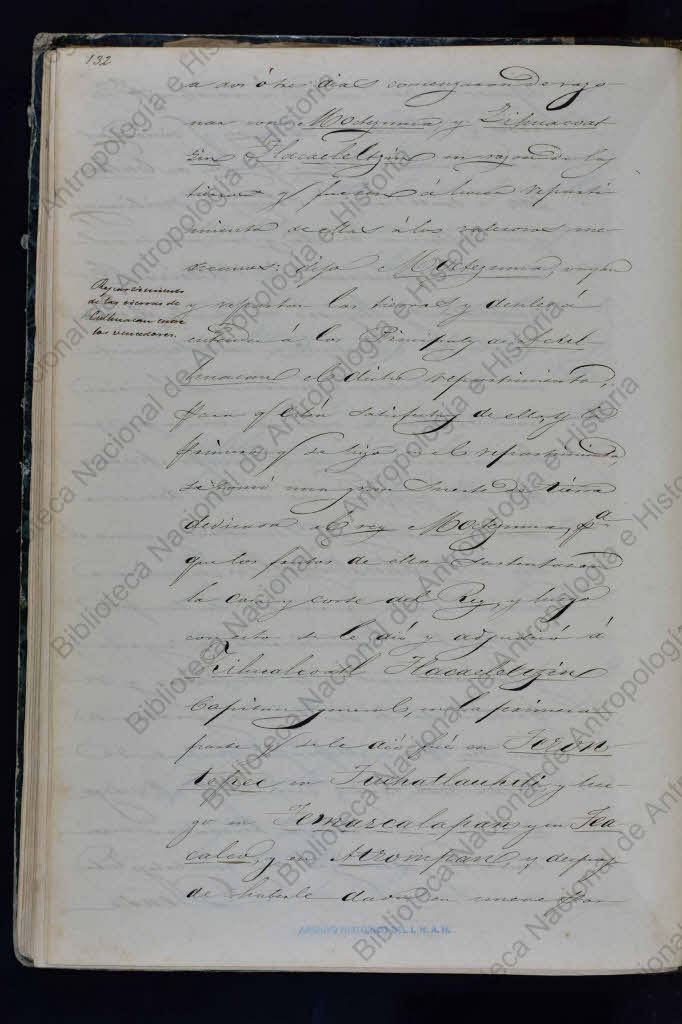 132
a dos ó tres dias comenzaron de razo
nar con Moctezuma, y Zihuacoat
zin Tlacaeleltzin en razon de las
tierras y fueron á hacer reparti-
mientos de ellas á los valerosos me-
xicanos: dijo Moctezuma, vayan
y repartan las tierras, y denles á
entender á los Principales de
huacan el dicho repartimiento,
para q. estén satisfechos de ello, y lo
primero q. se hizo el repartimiento,
se tomó una gran suerte de tierra
dedicada al rey Moctezuma, pa.
que los frutos de ella sustentasen
la casa y corte del Rey, y luego
con esto se le dió y adjudicó á
Zihuacoatl Tlacaeleltzin
Capitan general, en la primera
parte q. se le dió fué en
tepec, en y lue-
go en Temazcalapan y en Tea
calco, y en Atzompan, y despues
de haberle dado en nueve par
Repartimiento
de las tierras de
Culhuacan entre
los vencedores.
ARCHIVO HISTORICO DEL I. N. A. H.
Biblioteca Nacional de Antropología e Historia